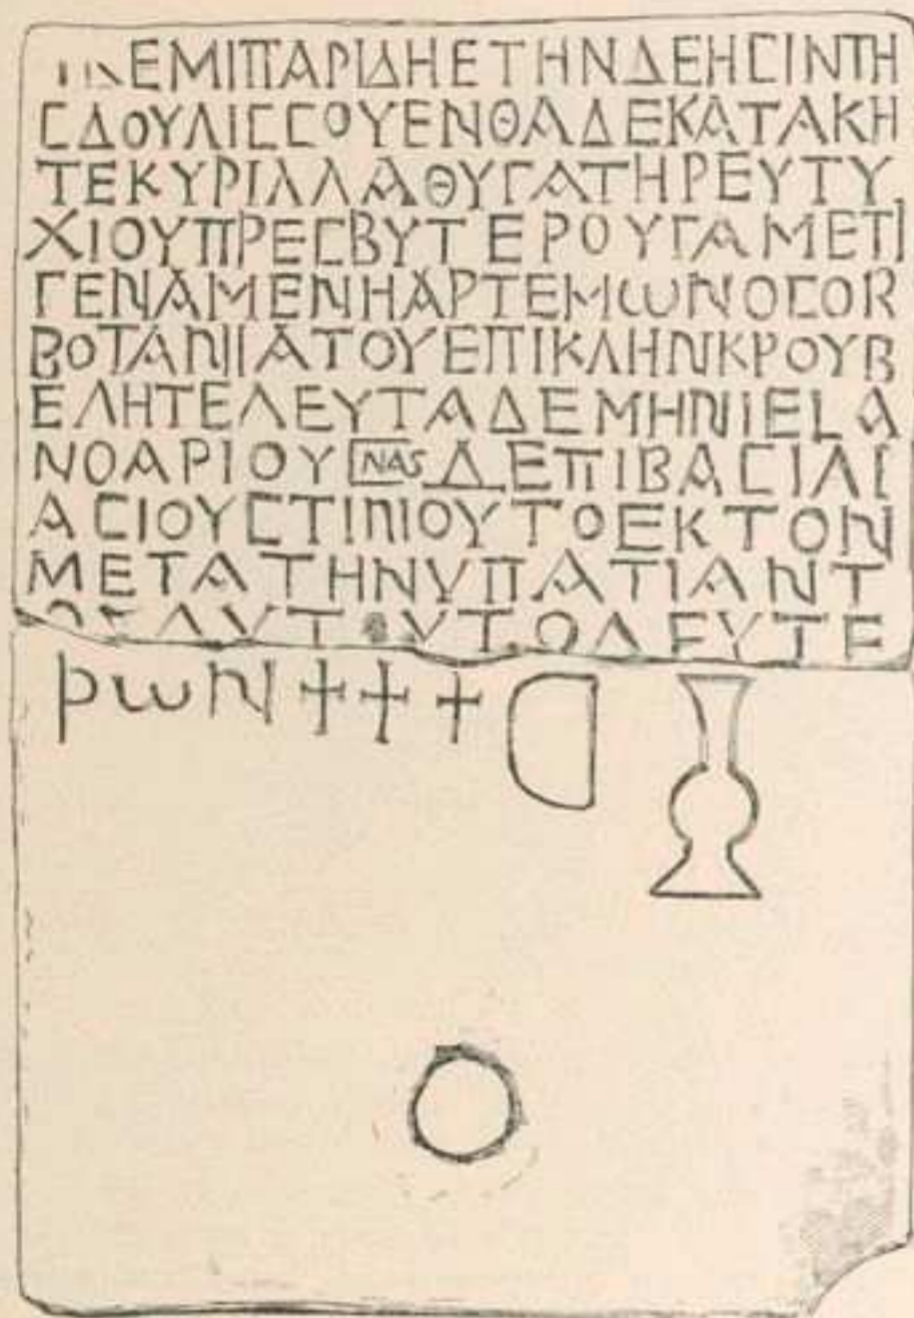 ΚΕΜΙΠΑΡΙΔΗΕΤΗΝΔΕΗCΙΝΤΗ
CΔΟΥΛΙCCΟΥΕΝΘΑΔΕΚΑΤΑΚΗ
ΤΕΚΥΡΙΛΛΑΘΥΓΑΤΗΡΕΥΤΥ
ΧΙΟΥΠΡΕCΒΥΤΕΡΟΥΓΑΜΕΤΙ
ΓΕΝΑΜΕΝΗΑΡΤΕΜωΝΟCΟR
ΒΟΤΑΝΙΑΤΟΥΕΠΙΚΛΗΝΚΡΟΥΒ
ΕΛΗΤΕΛΕΥΤΑΔΕΜΗΝΙΕΙΑ
ΝΟΑΡΙΟΥ ΝΑS ΔΕΠΙΒΑCΙΛΙ
ΑCΙΟΥCΤΙΝΙΟΥΤΟΕΚΤΟΝ
ΜΕΤΑΤΗΝΥΠΑΤΙΑΝΤ
ΟΣΑΥΤΟΥΤΟΔΕΥΤΕ
ΡωΝ✝✝✝